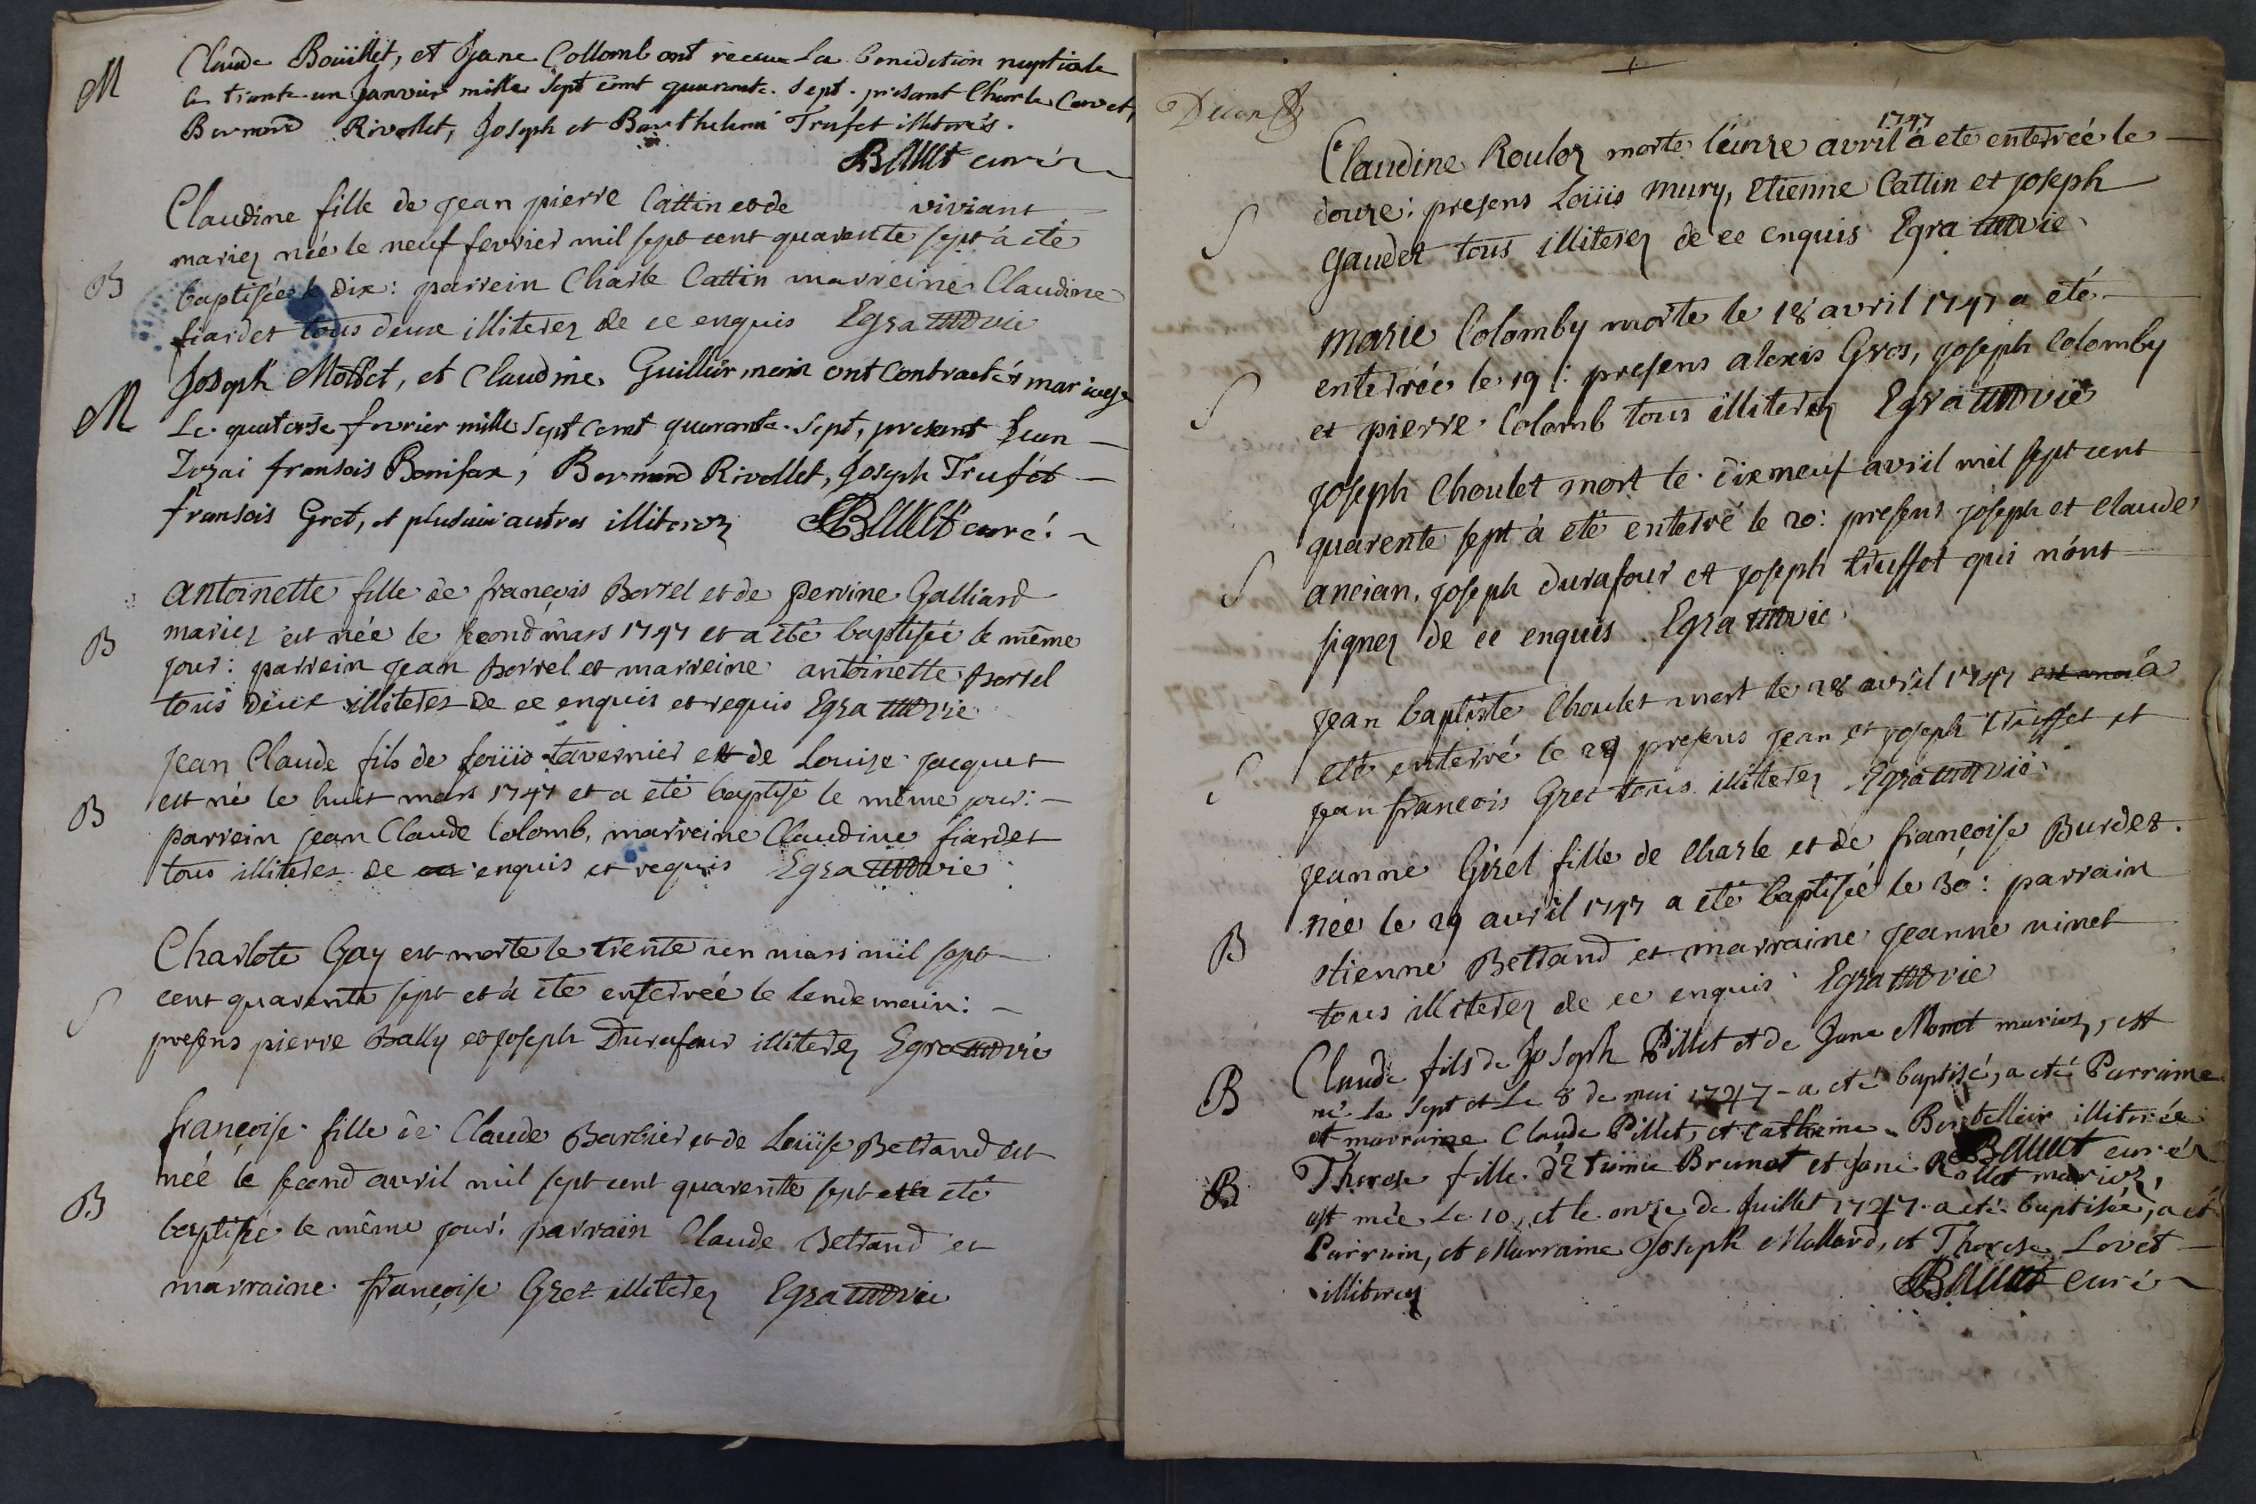 M
Claude Boüillet, et Jane Collomb ont receu La benediction nuptiale
le trente-un Janvier mille Sept cent quarante-Sept. présant Charle Carret,
Bernard Rivollet, Joseph et Barthelemi Trufet illiterés.
curé
Claudine fille de jean pierre Cattin et de viviant
mariez née le neuf fevrier mil sept cent quarente sept á eté
B
baptisée le dix: parrein Charle Cattin marreine Claudine
fiardet tous deux illiterez de ce enquis Egra vic
Joseph Mollet, et Claudine Guilliermein ont contracté mariage
M
Le quatorse fevrier mille Sept Cent quarante-Sept, présant Jean
fransois Bonifax, Bernard Rivollet, Joseph Trufet
fransois Gret, et plusieur autres illiterez curé.
antoinette fille de françois Borrel et de pervine Galliard
B
mariez est née le second mars 1747 et a été baptisée le même
jour: parrein jean borrel et marreine antoinette borrel
tous deux illiterez de ce enquis et requis Egra vic
jean Claude fils de Loüis tavernier et de Louise jacquet
B
est né le huit mars 1747 et a eté baptisé le même jour:
parrein jean Claude Colomb, marreine Claudine fiardet
tous illiterez de ce enquis et requis Egra vic
Charlote Gay est morte le trente un mars mil sept
S
cent quarente sept et á eté enterreé le lendemain:
presens pierre bally et joseph Durafour illiterez Egra vic
françoise fille de Claude Barbier et de Loüise Betrand est
neé le second avril mil sept cent quarente sept et a eté
B
baptisée le même jour: parrain Claude Betrand et
marraine françoise Gret illiterez Egra vic
1747
Claudine Rouloz morte l'unze avril á eté enterreé le
S
douze: presens Loüis mury, Etienne Cattin et joseph
gaudet tous illiterez de ce enquis Egra vic
marie Colomby morte le 18 avril 1747 a eté
S
enterrée le 19: presens alexis Gros, joseph Colomby
et pierre Colomb tous illiterez Egra vic
joseph Choulet mort le dixneuf avril mil sept cent
quarente sept á eté enterré le 20: presens joseph et claude
S
ancian, joseph durafour et joseph truffet qui n'ont
signez de ce enquis Egra vic
jean baptiste Choulet mort le 28 avril 1747 á
S
eté enterré le 29 presens jean et joseph truffet et
jean françois Gret tous illiterez Egra vic
jeanne Girel fille de Charle et de françoise Burdet
née le 29 avril 1747 a eté baptiseé le 30: parrain
B
etienne Betrand et marraine jeanne ninet
tous illiterez de ce enquis Egra vic
Claude fils de Joseph Pillet et de Jane Monet mariez, est
B
né le Sept et Le 8 de mai 1747 - a eté baptisé, a eté Parraine
et marraine Claude Pillet, et catherine illiterée
curé
B
Therese fille d'Etienne Brunet et Jane Rollet mariez,
est née Le 10, et le onze de Juillet 1747. a eté baptisée, a eté
Parrain, et Marraine Joseph Mollard, et Therese Lovet
illiterez curé